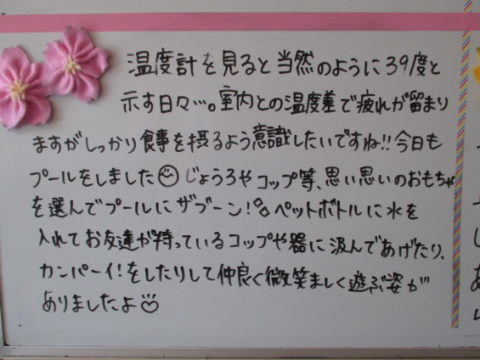 温度計を見ると当然のように39度と
示す日々…。室内との温度差で疲れが留まり
ますがしっかり食事を摂るよう意識したいですね!!今日も
プールをしました☺じょうろやコップ等、思い思いのおもちゃ
を選んでプールにザブーン!ペットボトルに水を
入れてお友達が持っているコップや器に汲んであげたり、
カンパーイ!をしたりして仲良く微笑ましく遊ぶ姿が
ありましたよ☺